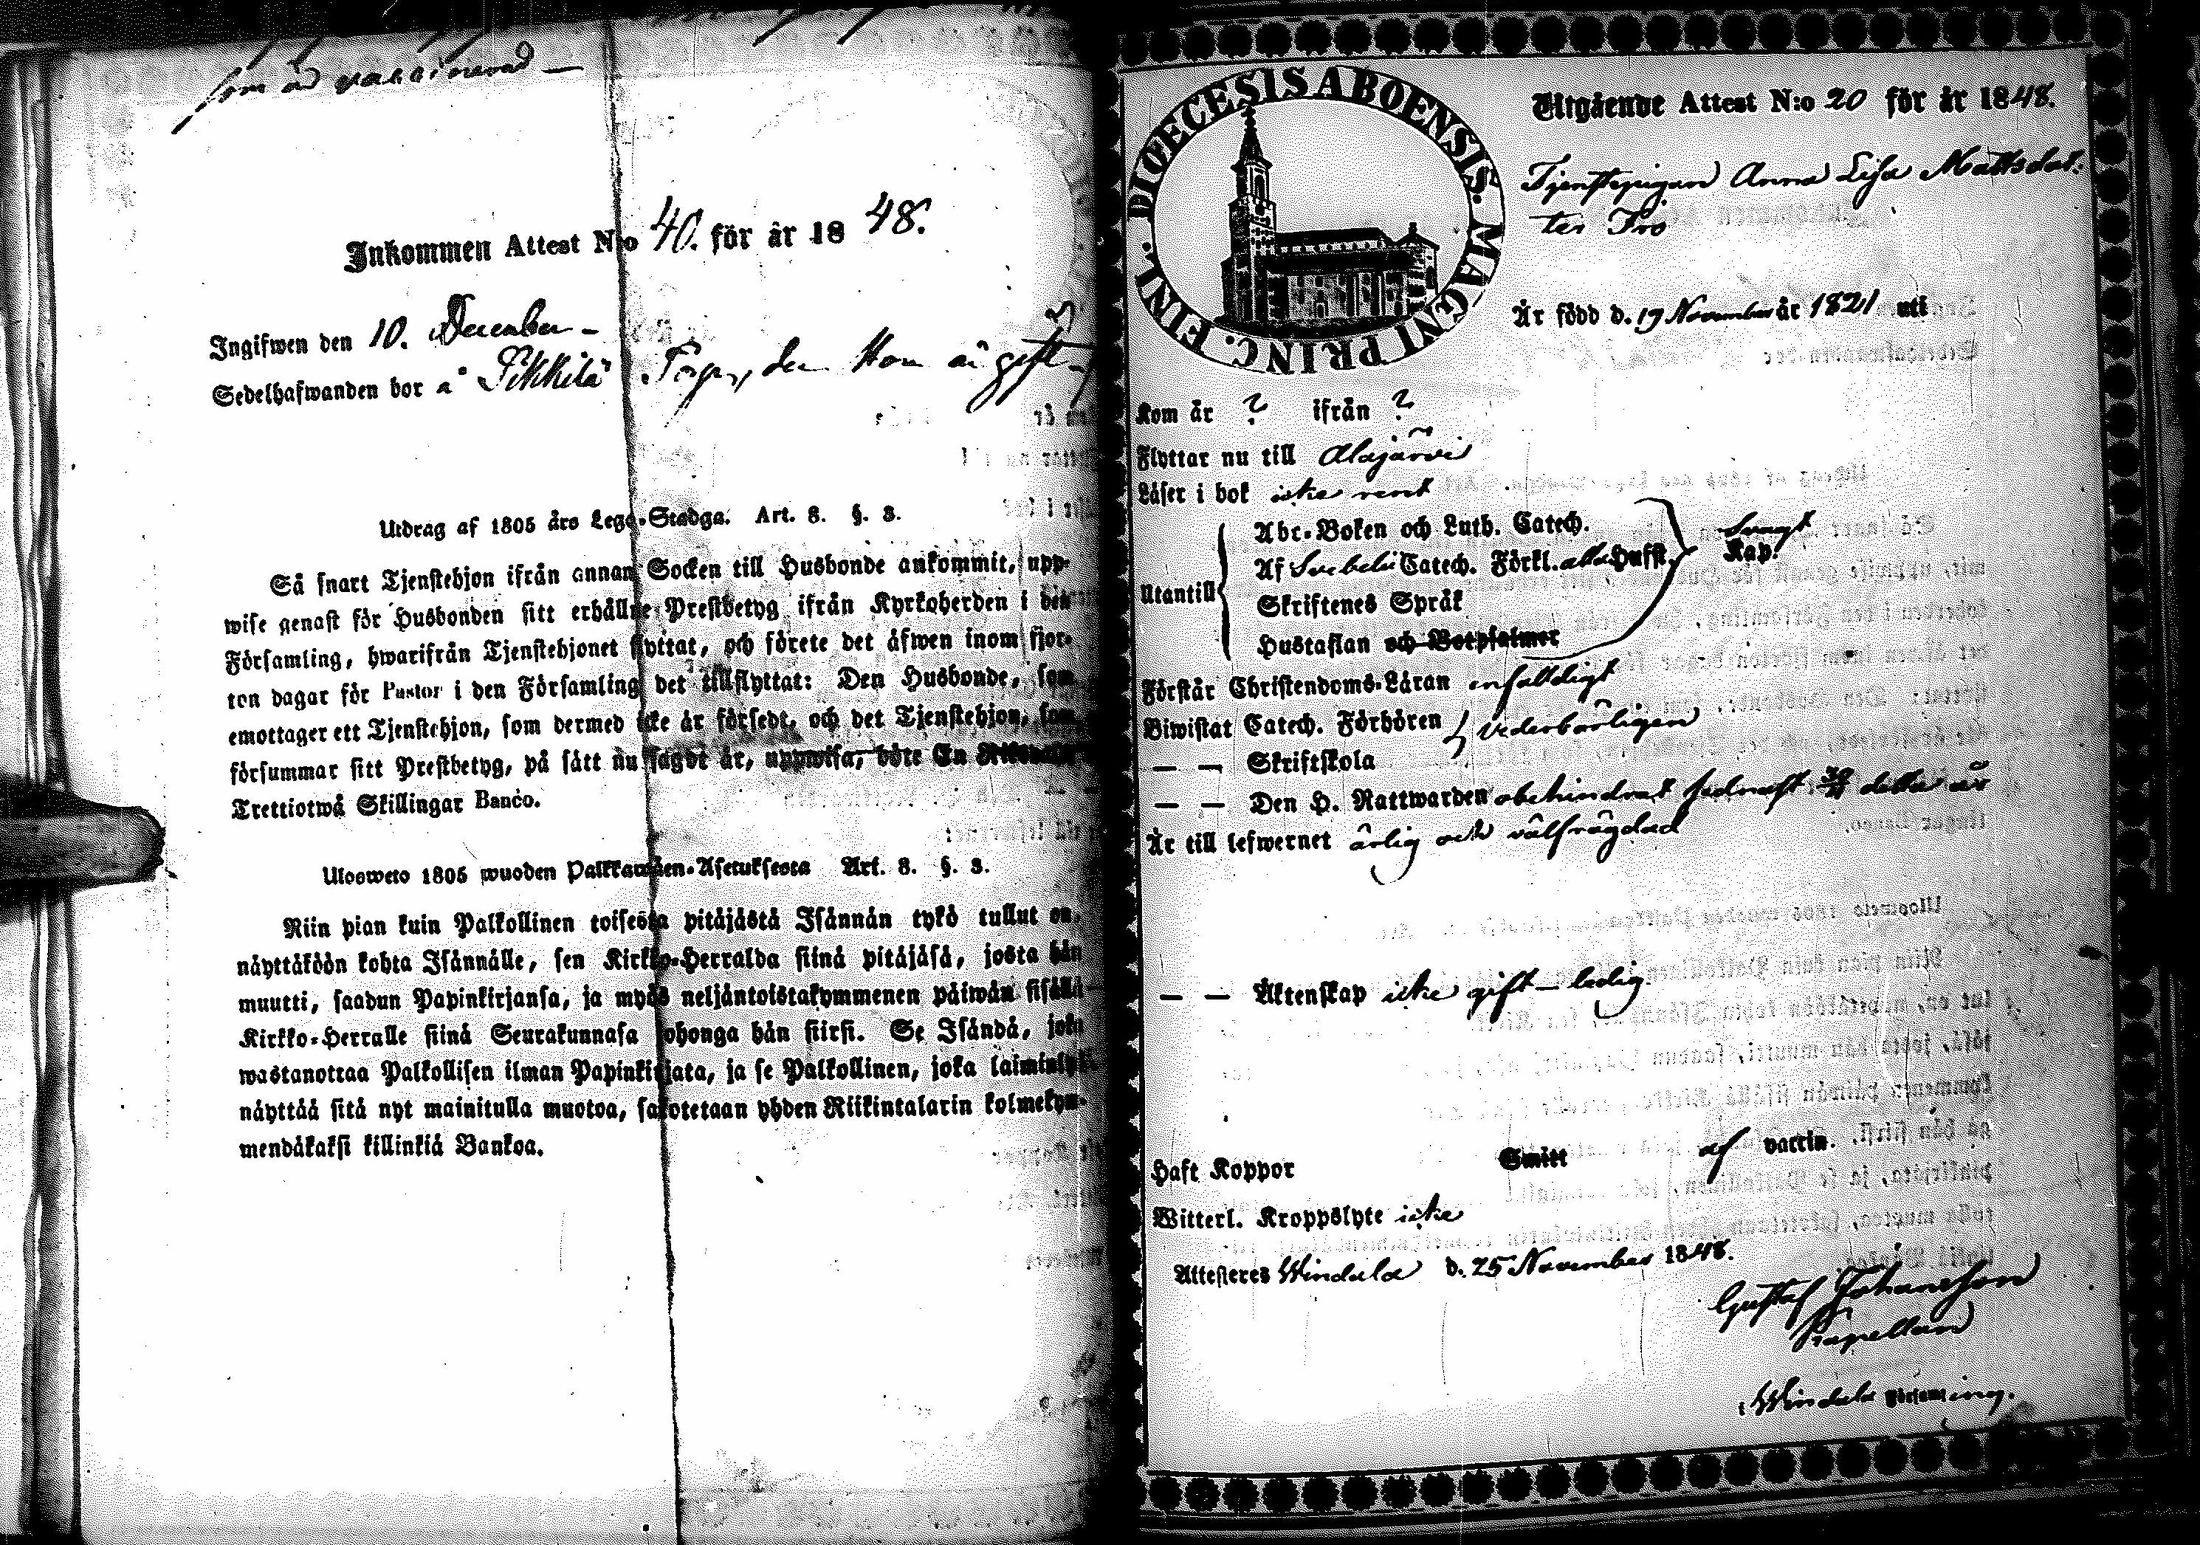 som är vaccinerad —
Inkommen Attest N:o 40. för år 18 48.
Ingifwen den 10. December –
Sedelhafwanden bor å Pikkilä Torp, der Hon är gift
Utdrag af 1805 års Lego-Stadga. Art. 8. §. 3.
Så snart Tjenstehjon ifrån annan Socken till Husbonde ankommit, upp-
wise genast för Husbonden sitt erhållne Prestbetyg ifrån Kyrkoherden i den
Församling, hwarifrån Tjenstehjonet flyttat, och förete det äfwen inom fjor-
ton dagar för Pastor i den Församling det tillflyttat: Den Husbonde, som
emottager ett Tjenstehjon, som dermed icke är försedt, och det Tjenstehjon, som
försummar sitt Prestbetyg, på sätt nu sagdt är, uppwisa, böte En Riksdaler
Trettiotwå Skillingar Banco.
Ulosweto 1805 wuoden Palkkawäen-Asetuksesta Art. 8. §. 3.
Niin pian kuin Palkollinen toisesta pitäjästä Isännän tykö tullut on,
näyttäköön kohta Isännälle, sen Kirkko-Herralda siinä pitäjäsä, josta hän
muutti, saadun Papinkirjansa, ja myös neljäntoistakymmenen päiwän sisällä
Kirkko-Herralle siinä Seurakunnasa johonga hän siirsi. Se Isändä, joka
wastanottaa Palkollisen ilman Papinkirjata, ja se Palkollinen, joka laiminlyö
näyttää sitä nyt mainitulla muotoa, sakotetaan yhden Riikintalarin kolmekym-
mendäkaksi killinkiä Bankoa.
DIOECESIS ABOENSIS. MAGNI PRINC. FINL.
Utgående Attest N:o 20 för år 1848.
Tjenstepigan Anna Lisa Mattsdot-
ter Fro
Är född d. 19 November år 1821 uti
Kom år ? ifrån ?
Flyttar nu till Alajärvi
Läser i bok icke rent
Utantill
Abc-Boken och Luth. Catech.
Af Svebelii Catech. Förkl. alla Hufst. svagt Kap.
Skriftenes Språk
Hustaflan och Botpsalmer
Förstår Christendoms-Läran enfaldigt
Biwistat Catech. Förhören vederbörligen
— — Skriftskola
— — Den H. Nattwarden obehindrat sednast detta år
Är till lefwernet ärlig och välfrägdad
— — Äktenskap icke gift – ledig.
Haft Koppor Smitt af vaccin.
Witterl. Kroppslyte icke
Attesteres Windala d. 25 November 1848.
Gustaf Johansson
Kapellan
i Windala Församling.